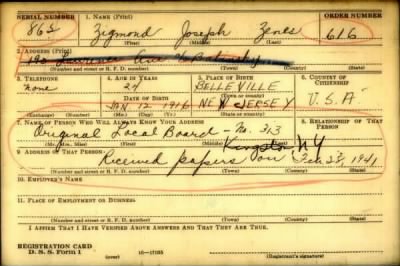 SERIAL NUMBER 1. NAME (Print) ORDER NUMBER
Zigmond Joseph Zenes 616
(First) (Middle) (Last)
2. ADDRESS (Print)
(Number and street or R. F. D. number) (Town) (County) (State)
3. TELEPHONE 4. AGE IN YEARS 5. PLACE OF BIRTH 6. COUNTRY OF CITIZENSHIP
None BELLEVILLE
DATE OF BIRTH (Town or county)
JAN 12 1916 NEW JERSEY U.S.A
(Exchange) (Number) (Mo.) (Day) (Yr.) (State or country)
7. NAME OF PERSON WHO WILL ALWAYS KNOW YOUR ADDRESS 8. RELATIONSHIP OF THAT PERSON
Original Local Board - No. 313
(Mr., Mrs., Miss) (First) (Middle) (Last)
Kingston NY
9. ADDRESS OF THAT PERSON
Received papers on Feb 28, 1941
(Number and street or R. F. D. number) (Town) (County) (State)
10. EMPLOYER'S NAME
11. PLACE OF EMPLOYMENT OR BUSINESS
(Number and street or R. F. D. number) (Town) (County) (State)
I AFFIRM THAT I HAVE VERIFIED ABOVE ANSWERS AND THAT THEY ARE TRUE.
REGISTRATION CARD
D. S. S. Form 1 16—17105 (Registrant's signature)